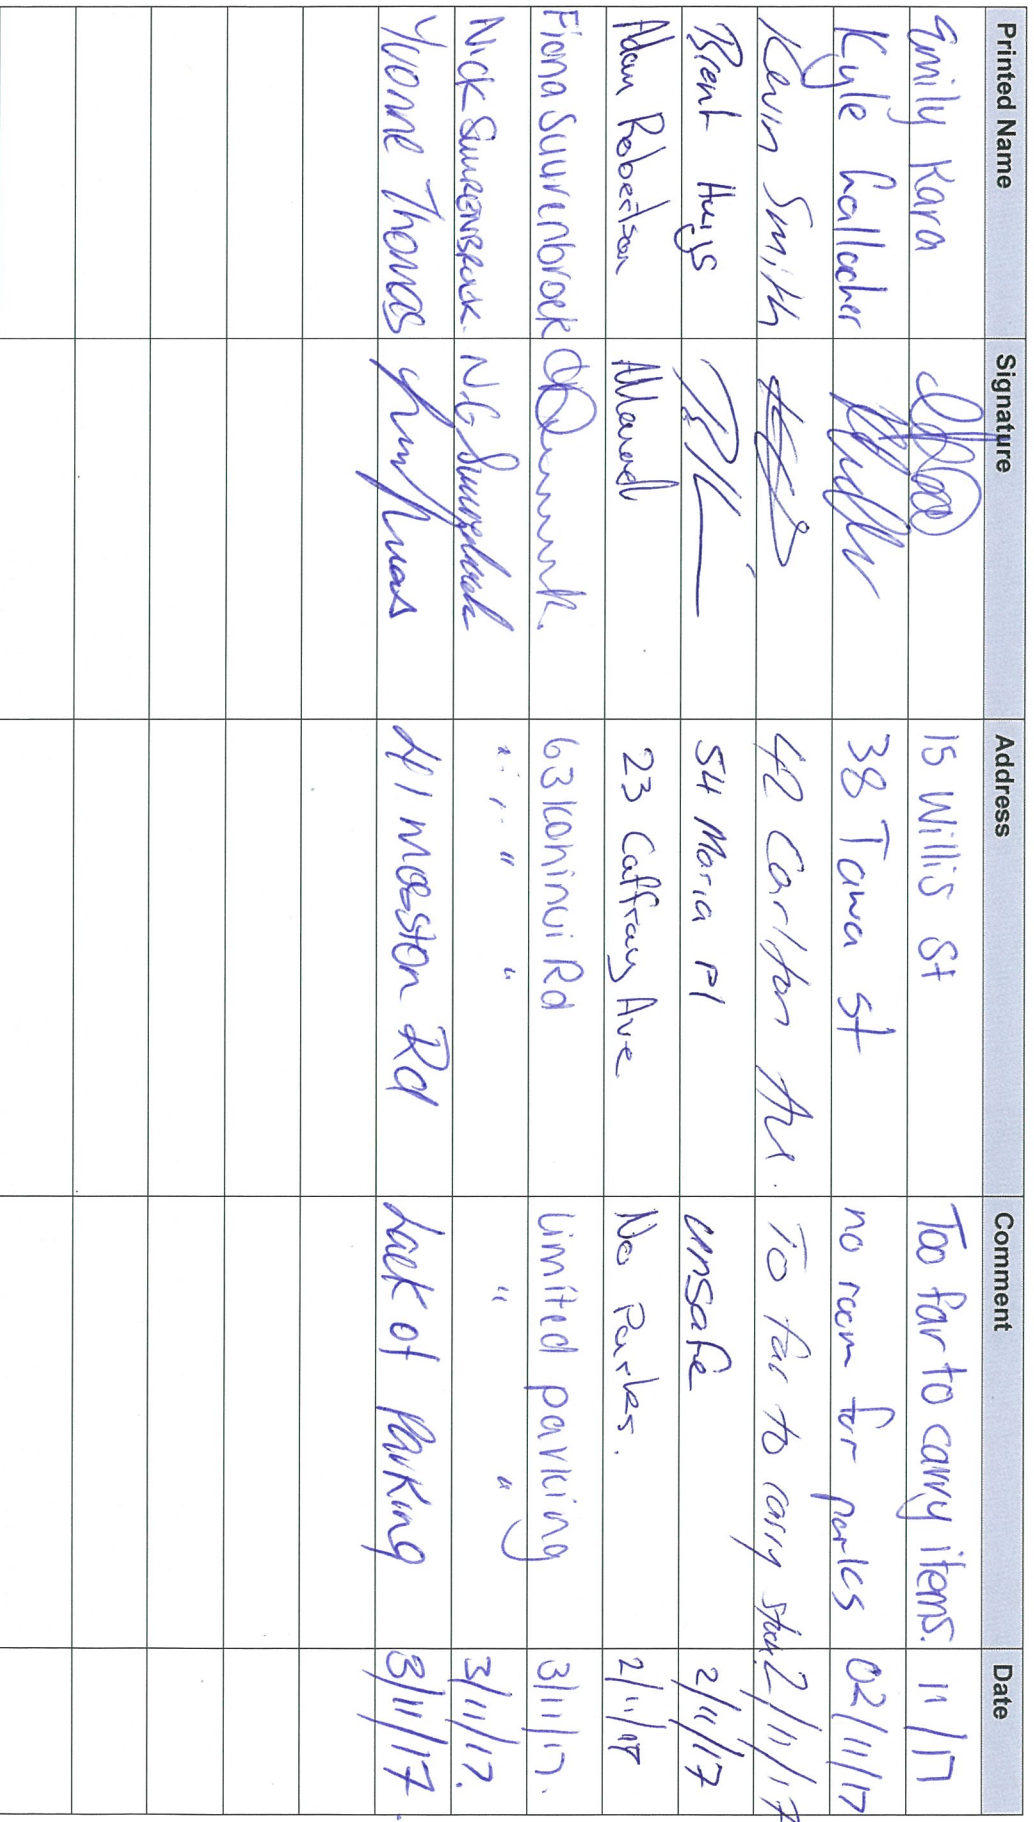 Printed Name Signature Address Comment Date
Emily Kara 15 Willis St Too far to carry items. 11/17
Kyle Gallocher 38 Tawa St no room for parks 02/11/17
Kevin Smith 42 Carlton Ave. To far to carry 2/11/17
Brent 54 Maria Pl unsafe 2/11/17
Adam Robertson 23 Caffray Ave No Parks. 2/11/17
Fiona Suurenbroek 63 Konini Rd Limited parking 3/11/17.
Nick N.G " " " " " 3/11/17.
Yvonne Thomas 41 Rd Lack of Parking 3/11/17.